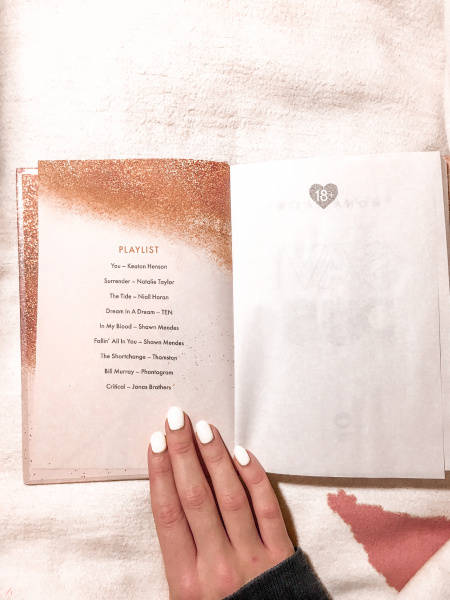 PLAYLIST
You – Keaton Henson
Surrender – Natalie Taylor
The Tide – Niall Horan
Dream In A Dream – TEN
In My Blood – Shawn Mendes
Fallin' All In You – Shawn Mendes
The Shortchange – Thomston
Bill Murray – Phantogram
Critical – Jonas Brothers
18+